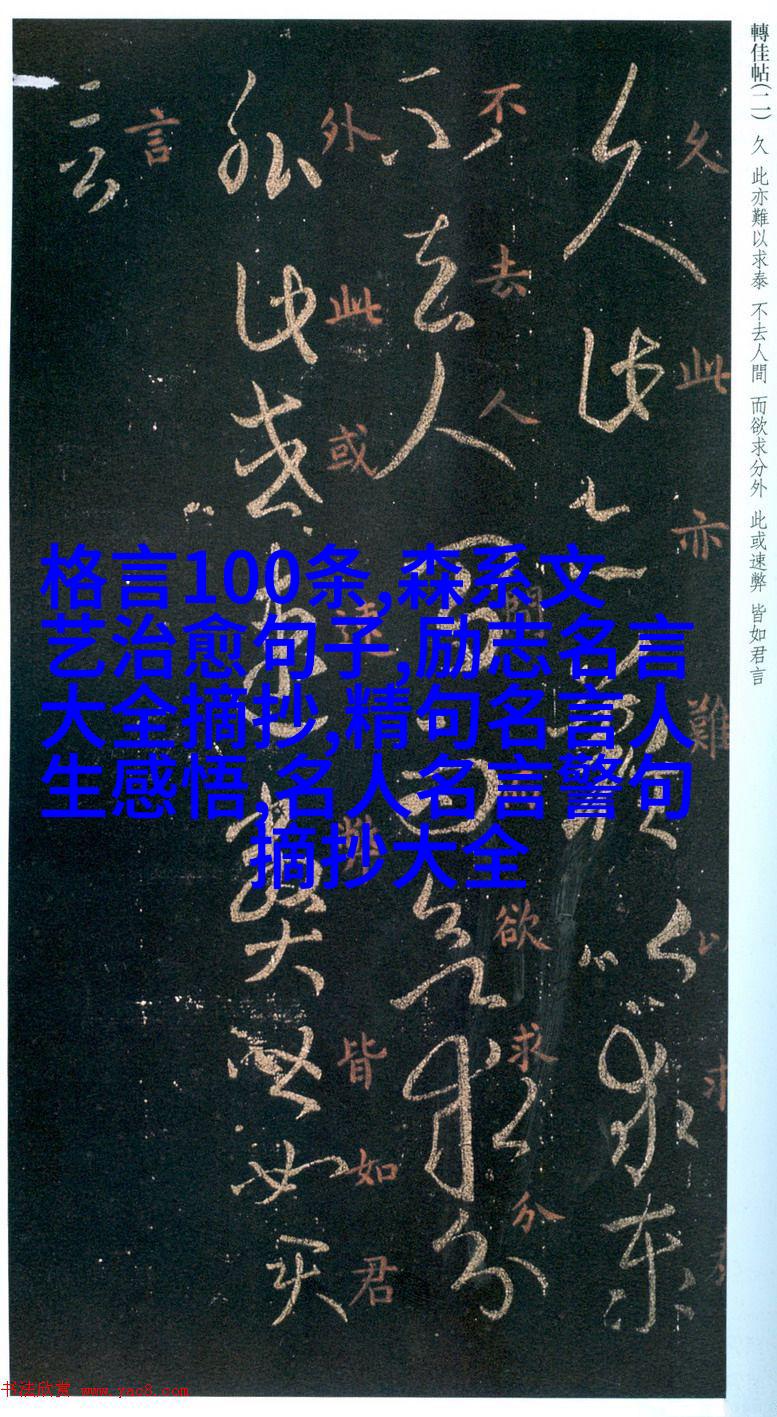 轉佳帖(二) 久 此亦難以求泰 不去人間 而欲求分外 此或速弊 皆如君言
久此亦難以求泰
不去人間而欲求分
外此或速弊皆如君
言
久此亦難以求
不去人間欲求分
外此或速弊皆如君
言
格言100条,森系文
艺治愈句子,励志名言
大全摘抄,精句名言人
生感悟,名人名言警句
摘抄大全
书法欣赏 www.yac8.com